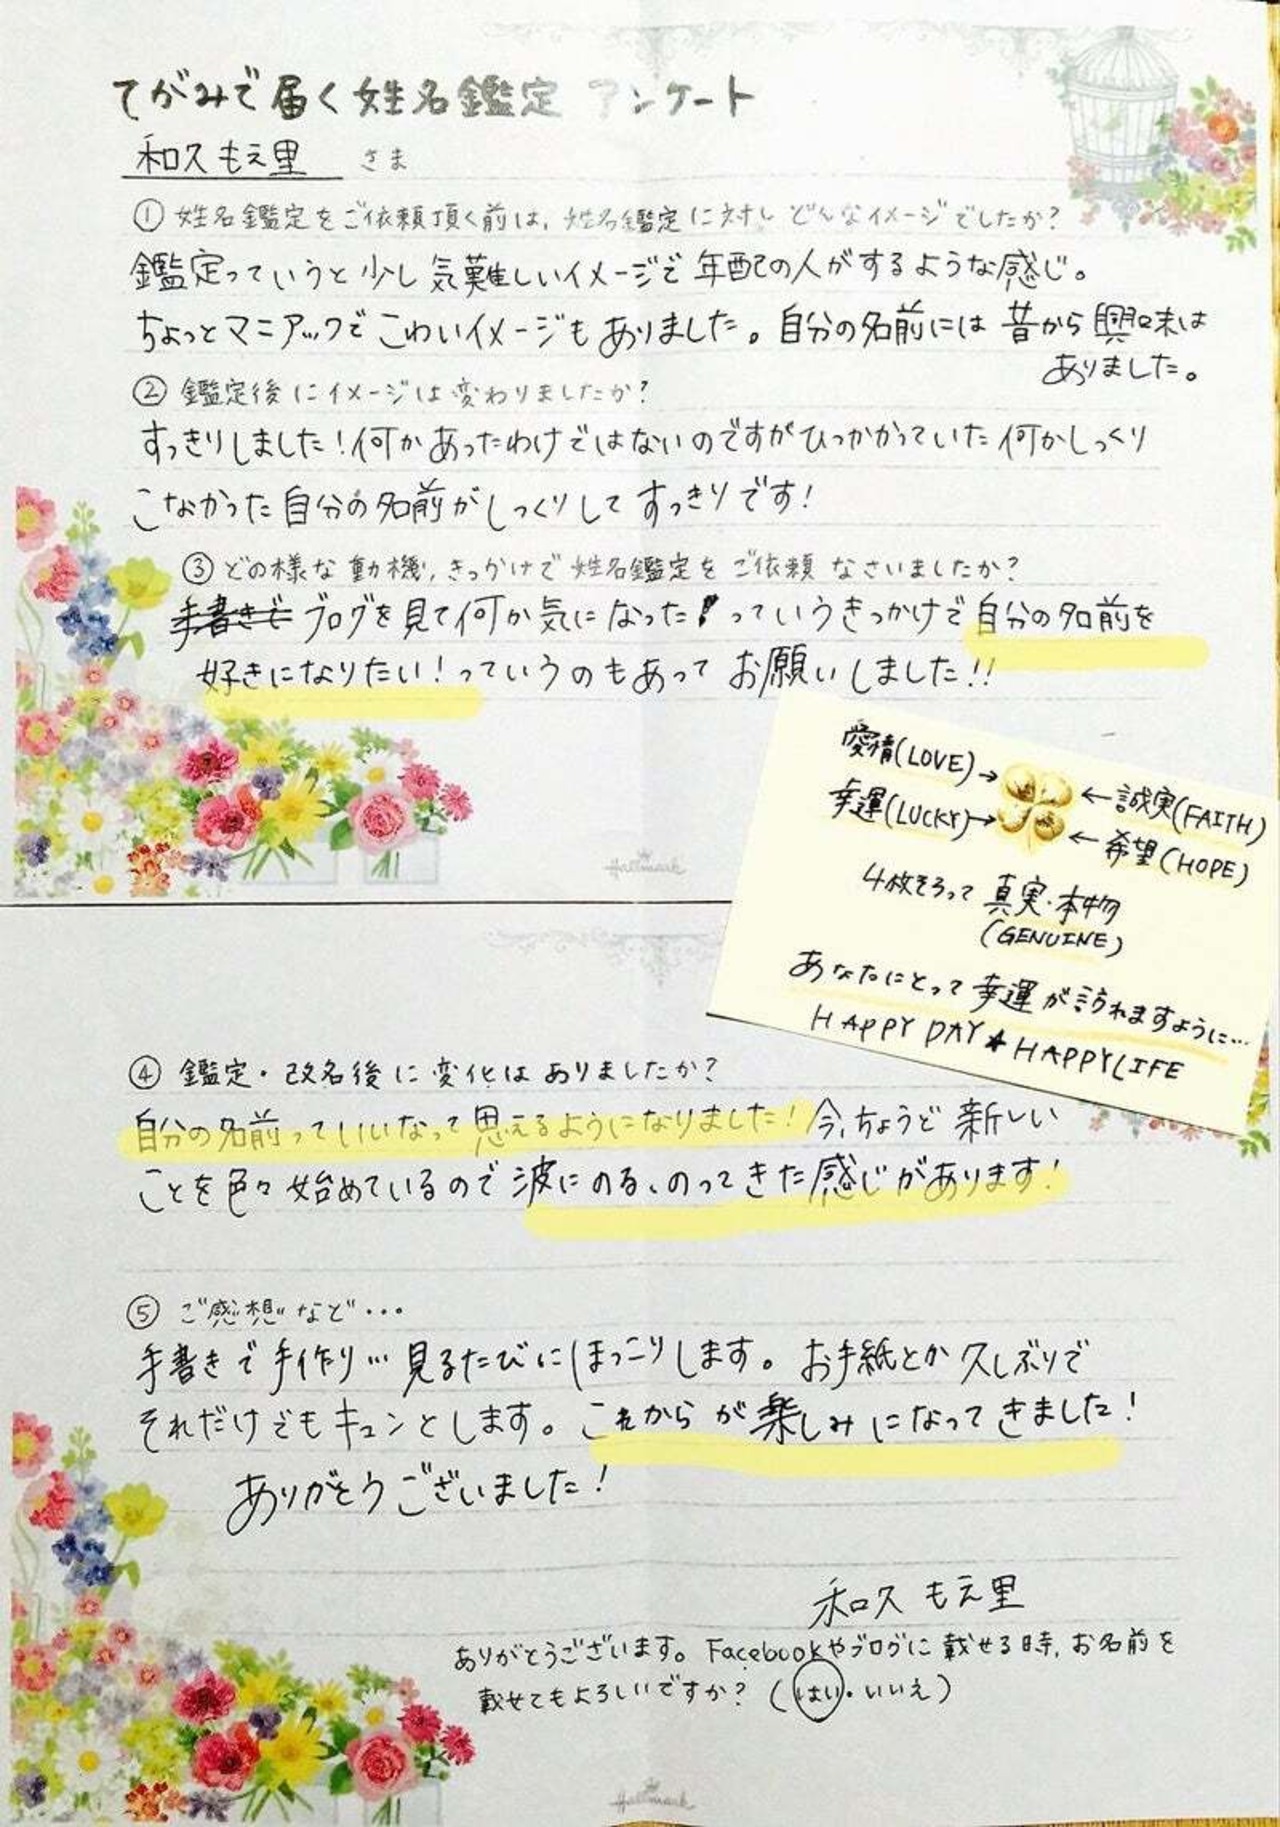 てがみで届く姓名鑑定 アンケート
和久 もえ里 さま
① 姓名鑑定をご依頼頂く前は、姓名鑑定に対し どんなイメージでしたか?
鑑定っていうと少し気難しいイメージで 年配の人がするような感じ。
ちょっとマニアックでこわいイメージもありました。自分の名前には 昔から興味は
ありました。
② 鑑定後にイメージは変わりましたか?
すっきりしました!何かあったわけではないのですがひっかかっていた何かしっくり
こなかった自分の名前がしっくりして すっきりです!
③ どの様な動機、きっかけで 姓名鑑定をご依頼 なさいましたか?
手書きで ブログを見て何か気になった!っていうきっかけで自分の名前を
好きになりたい!っていうのもあって お願いしました!!
愛情(LOVE)→ ←誠実(FAITH)
幸運(LUCKY)→ ←希望(HOPE)
4枚そろって 真実・本物
(GENUINE)
あなたにとって 幸運が訪れますように…
HAPPY DAY★HAPPY LIFE
Hallmark
④ 鑑定・改名後に変化はありましたか?
自分の名前っていいなって思えるようになりました!今、ちょうど 新しい
ことを色々始めているので波にのる、のってきた感じがあります!
⑤ ご感想など・・・
手書きで手作り… 見るたびにほっこりします。お手紙とか久しぶりで
それだけでもキュンとします。これからが楽しみになってきました!
ありがとうございました!
和久 もえ里
ありがとうございます。Facebookやブログに載せる時、お名前を
載せてもよろしいですか? (はい・いいえ)
Hallmark